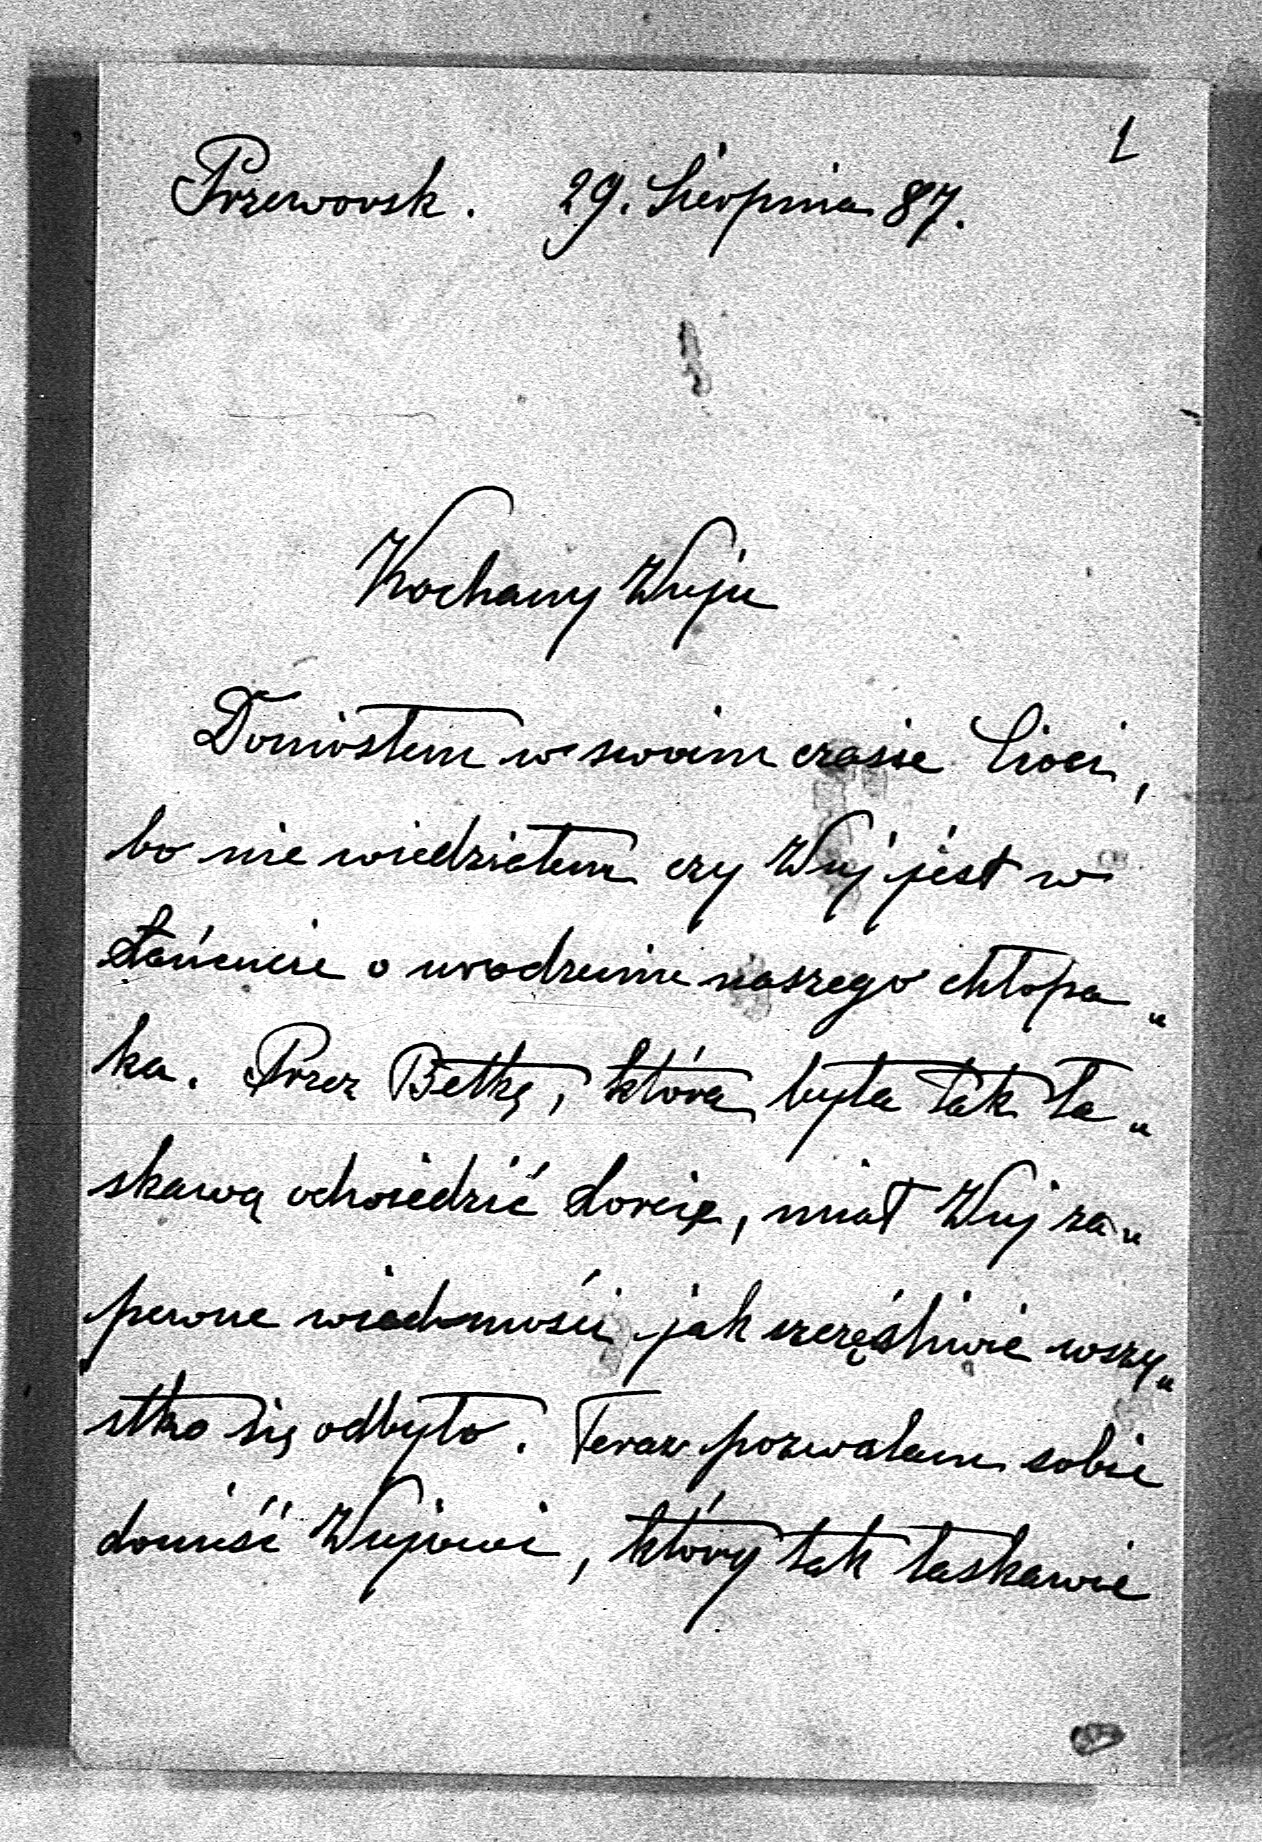 1
Przeworsk. 29. Sierpnia 87.
Kochany Wuju
Doniosłem w swoim czasie Cioci,
bo nie wiedziałem czy Wuj jest w
Łańcucie o urodzeniu naszego chłopa„
ka. Przez Betkę, która była tak ła„
skawą odwiedzić Lorcię, miał Wuj za„
pewne wiadomości jak szczęśliwie wszy„
stko się odbyło. Teraz pozwalam sobie
donieść Wujowi, który tak łaskawie